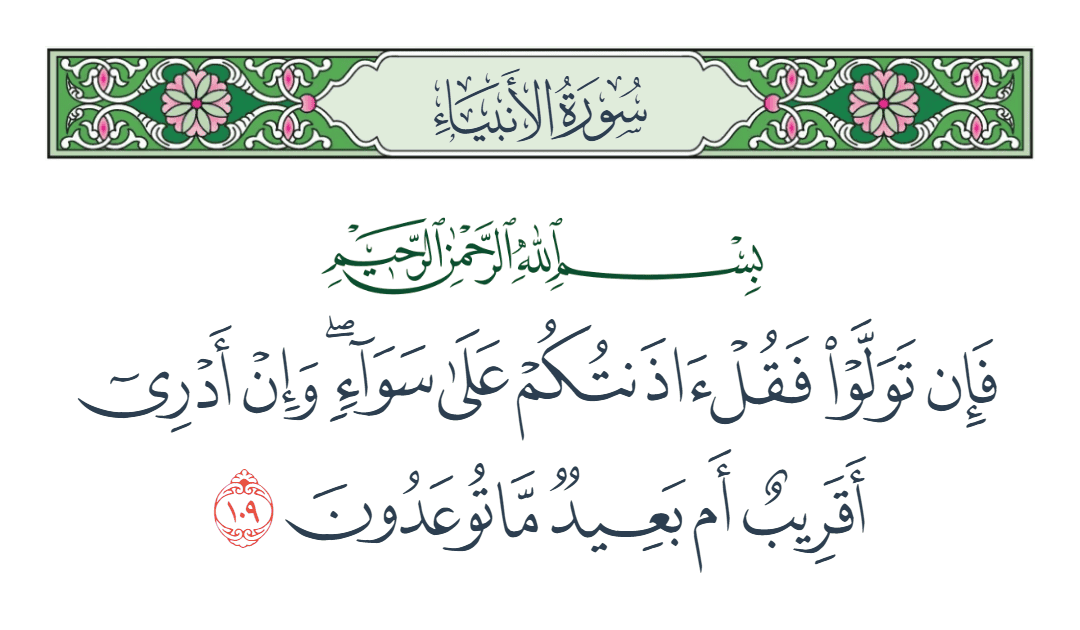 سُورَةُ الأَنبِيَاءِ
بِسْمِ ٱللَّهِ ٱلرَّحْمَٰنِ ٱلرَّحِيمِ
فَإِن تَوَلَّوْا۟ فَقُلْ ءَاذَنتُكُمْ عَلَىٰ سَوَآءٍۢ ۖ وَإِنْ أَدْرِىٓ
أَقَرِيبٌ أَم بَعِيدٌۭ مَّا تُوعَدُونَ ١٠٩